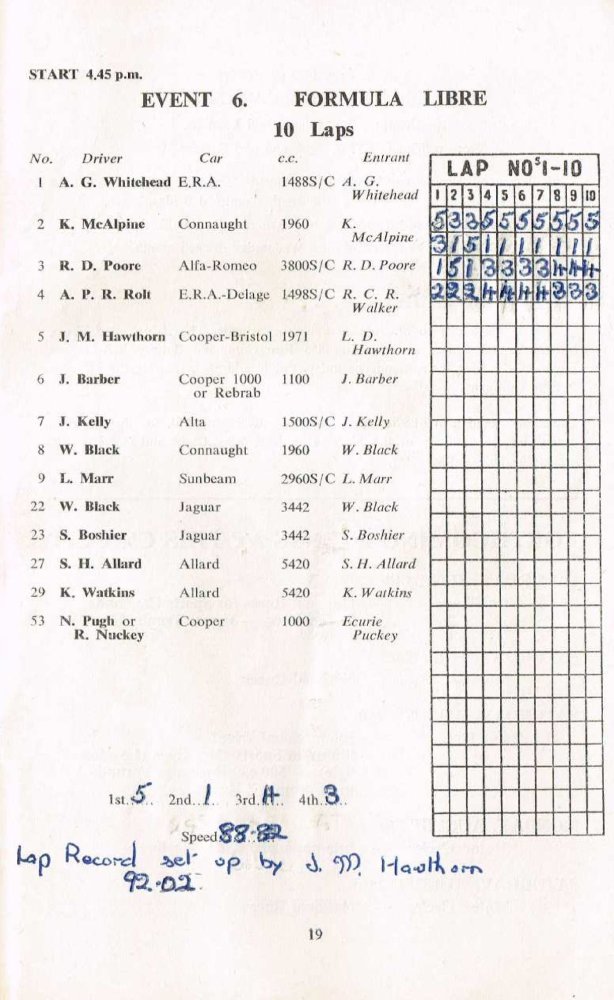 START 4.45 p.m.
EVENT 6. FORMULA LIBRE
10 Laps
No. Driver Car c.c. Entrant
1 A. G. Whitehead E.R.A. 1488S/C A. G. Whitehead
2 K. McAlpine Connaught 1960 K. McAlpine
3 R. D. Poore Alfa-Romeo 3800S/C R. D. Poore
4 A. P. R. Rolt E.R.A.-Delage 1498S/C R. C. R. Walker
5 J. M. Hawthorn Cooper-Bristol 1971 L. D. Hawthorn
6 J. Barber Cooper 1000 or Rebrab 1100 J. Barber
7 J. Kelly Alta 1500S/C J. Kelly
8 W. Black Connaught 1960 W. Black
9 L. Marr Sunbeam 2960S/C L. Marr
22 W. Black Jaguar 3442 W. Black
23 S. Boshier Jaguar 3442 S. Boshier
27 S. H. Allard Allard 5420 S. H. Allard
29 K. Watkins Allard 5420 K. Watkins
53 N. Pugh or R. Nuckey Cooper 1000 Ecurie Puckey
LAP NOS 1-10
1 2 3 4 5 6 7 8 9 10
5 3 3 5 5 5 5 5 5 5
3 1 5 1 1 1 1 1 1 1
1 5 1 3 3 3 3 4 4 4
2 2 2 4 4 4 4 3 3 3
1st. 5 2nd. 1 3rd. 4 4th. 3
Speed 88.82
Lap Record set up by J. M. Hawthorn
92.02.
19